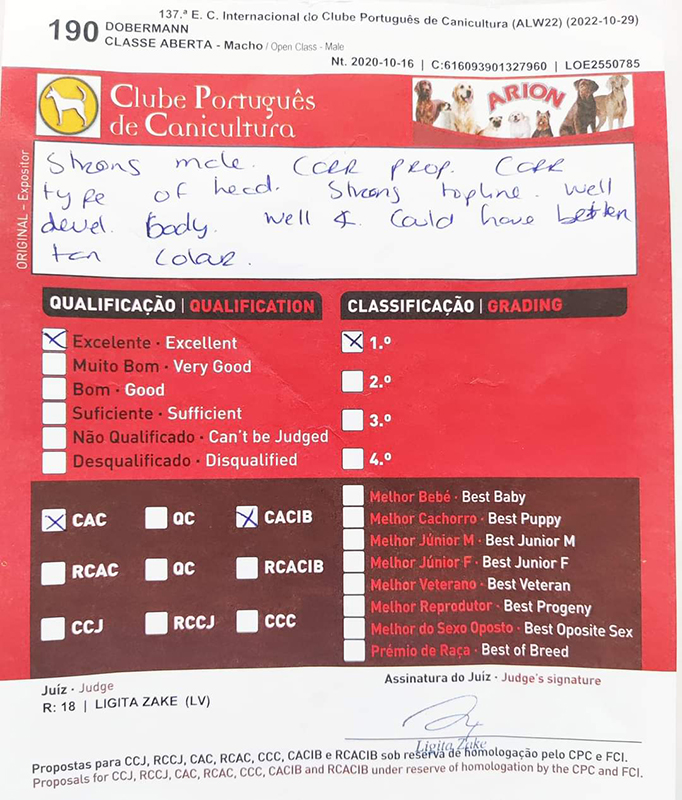 137.ª E. C. Internacional do Clube Português de Canicultura (ALW22) (2022-10-29)
190 DOBERMANN
CLASSE ABERTA - Macho / Open Class - Male
Nt. 2020-10-16 | C:616093901327960 | LOE2550785
Clube Português
de Canicultura
ARION
ORIGINAL - Expositor
Strong male. Corr prop. Corr
type of head. Strong topline. Well
devel. body. Well &. Could have better
tan colour.
QUALIFICAÇÃO | QUALIFICATION
CLASSIFICAÇÃO | GRADING
Excelente · Excellent
1.º
Muito Bom · Very Good
2.º
Bom · Good
Suficiente · Sufficient
3.º
Não Qualificado · Can't be Judged
Desqualificado · Disqualified
4.º
CAC QC CACIB
RCAC QC RCACIB
CCJ RCCJ CCC
Melhor Bebé · Best Baby
Melhor Cachorro · Best Puppy
Melhor Júnior M · Best Junior M
Melhor Júnior F · Best Junior F
Melhor Veterano · Best Veteran
Melhor Reprodutor · Best Progeny
Melhor do Sexo Oposto · Best Oposite Sex
Prémio de Raça · Best of Breed
Juíz · Judge
R: 18 | LIGITA ZAKE (LV)
Assinatura do Juíz · Judge's signature
Ligita Zake
Propostas para CCJ, RCCJ, CAC, RCAC, CCC, CACIB e RCACIB sob reserva de homologação pelo CPC e FCI.
Proposals for CCJ, RCCJ, CAC, RCAC, CCC, CACIB and RCACIB under reserve of homologation by the CPC and FCI.